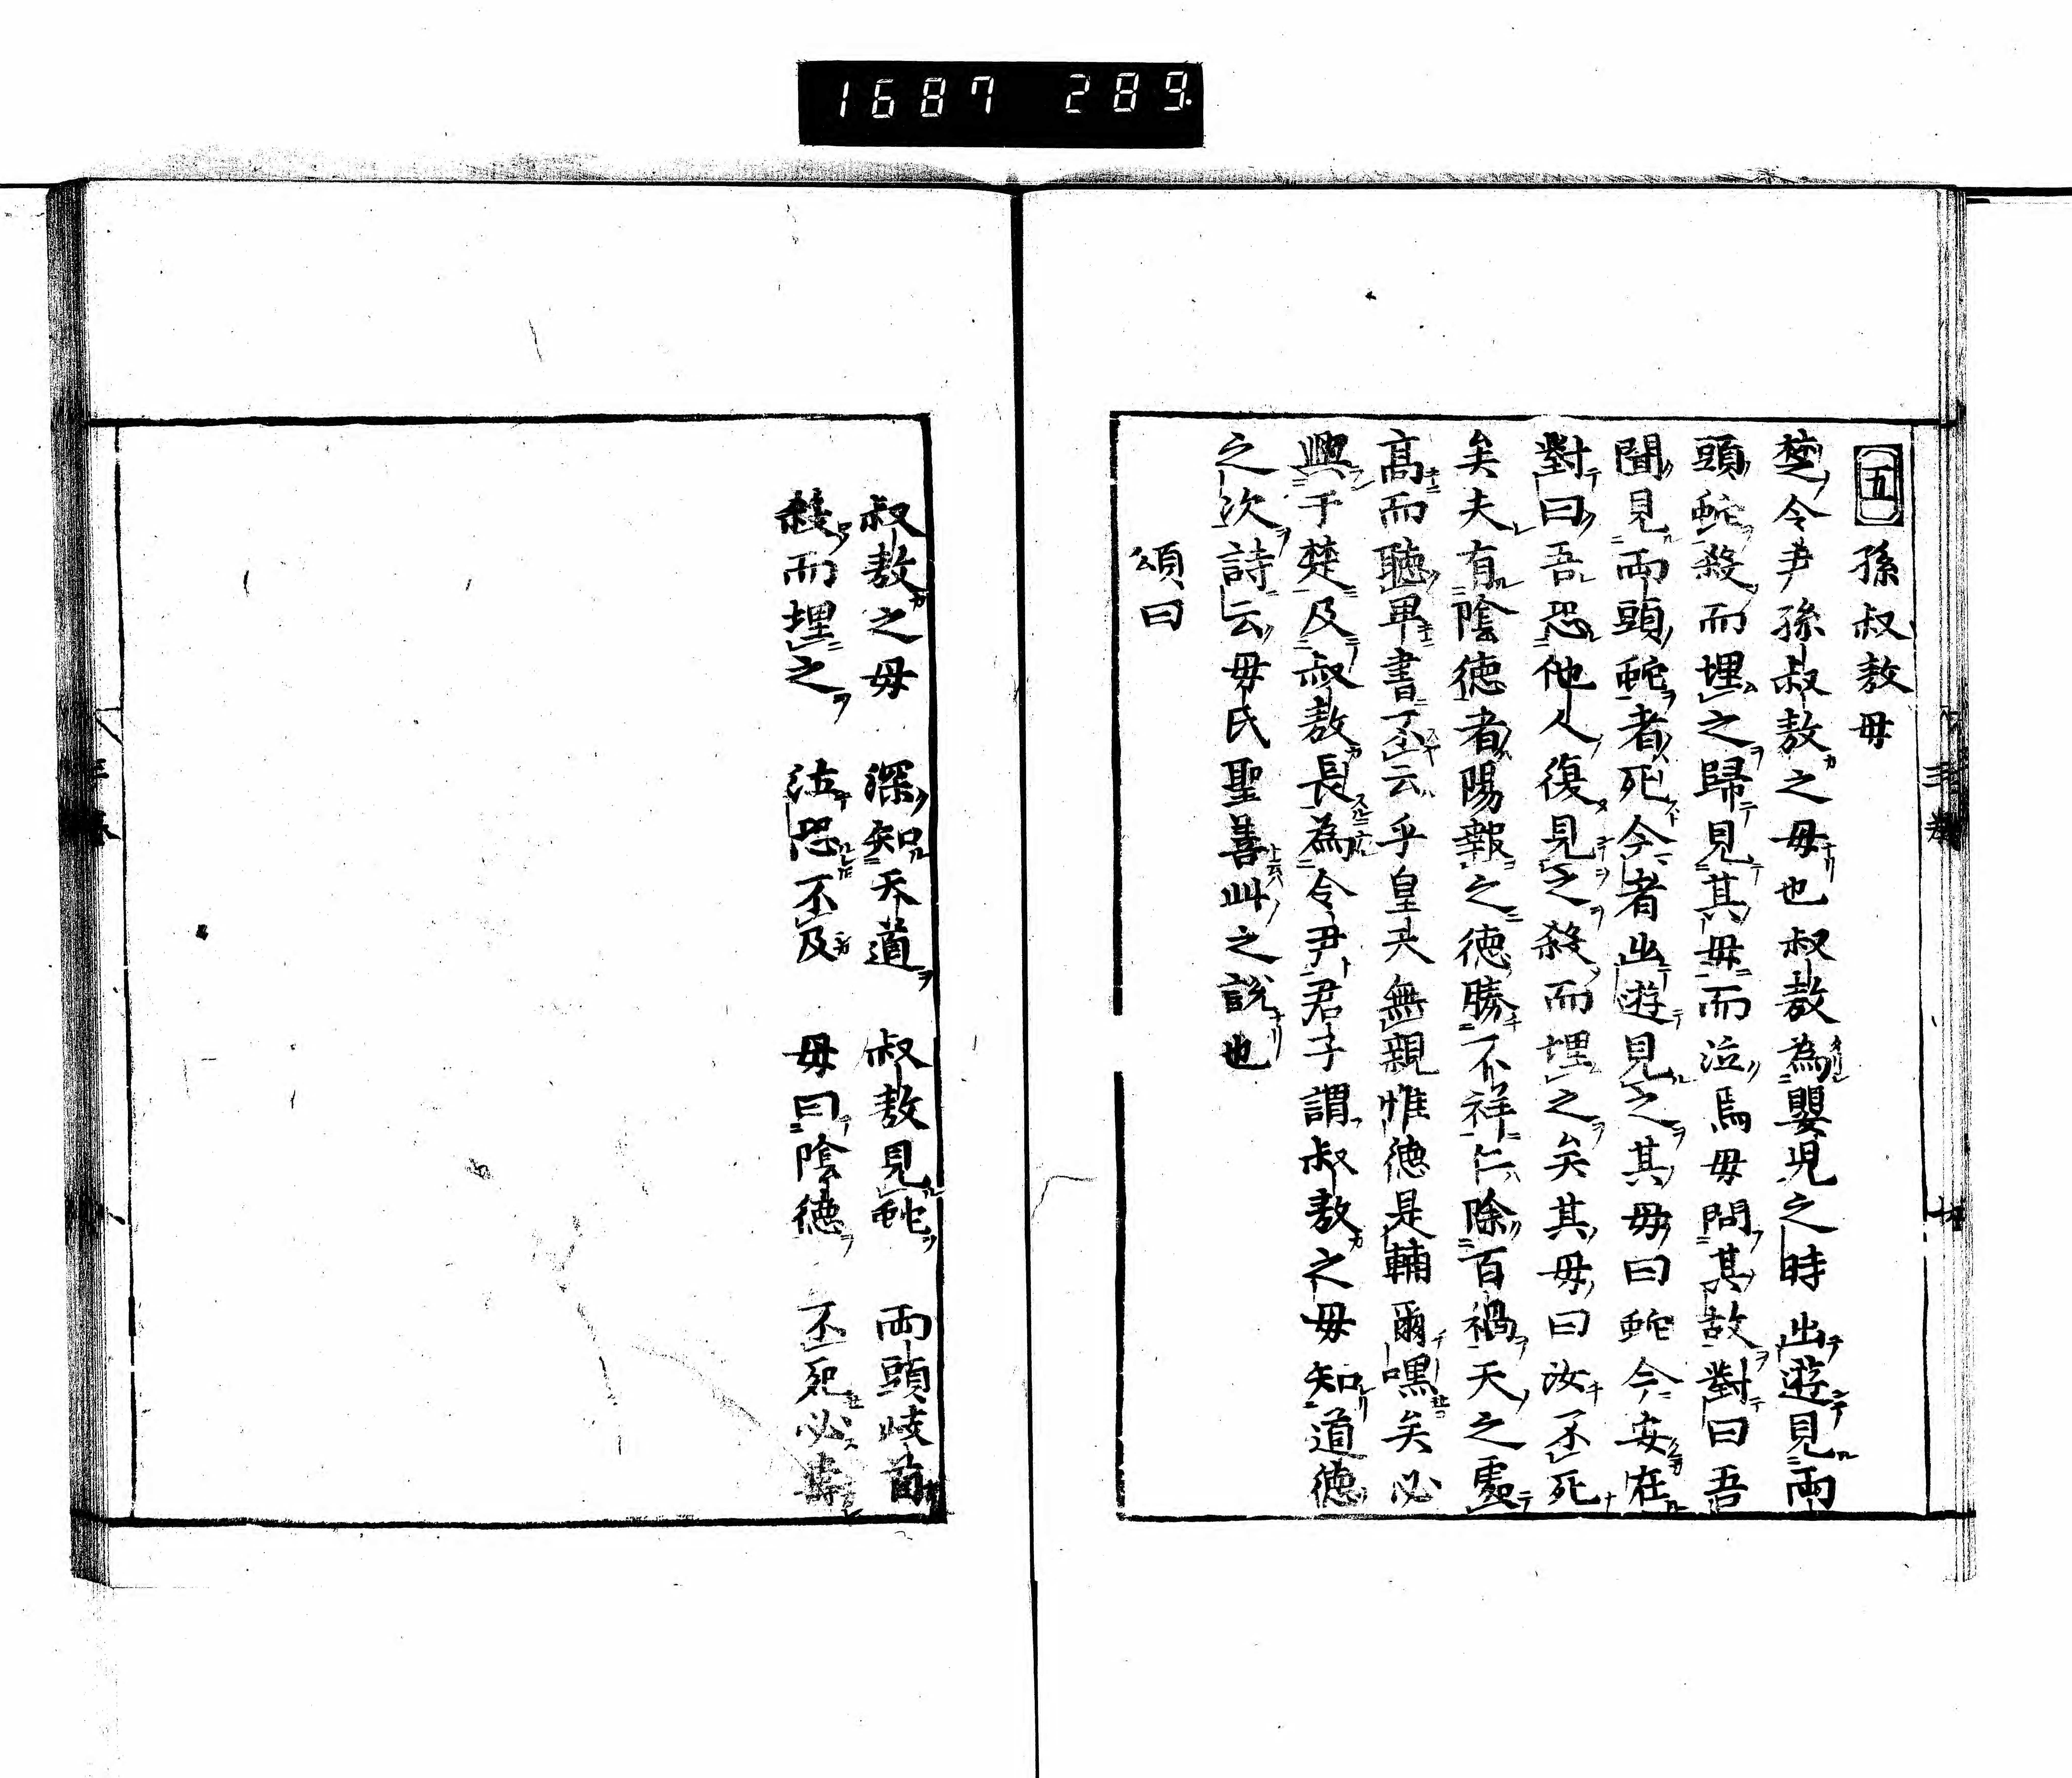 1687 289
五 孫叔敖母
楚令尹孫叔敖之母也叔敖為嬰児之時出遊見両
頭蛇殺而埋之歸見其母而泣焉母問其故對曰吾
聞見両頭蛇者死今者出遊見之其母曰蛇今安在
對曰吾恐他人復見之殺而埋之矣其母曰汝不死
矣夫有陰徳者陽報之徳勝不祥仁除百禍天之處
髙而聴卑書不云乎皇天無親惟徳是輔爾嘿矣必
興于楚及叔敖長為令尹君子謂叔敖之母知道徳
之次詩云母氏聖善此之説也
頌曰
叔敖之母 深知天道 叔敖見蛇 両頭岐首
殺而埋之 泣恐不及 母曰陰徳 不死必壽